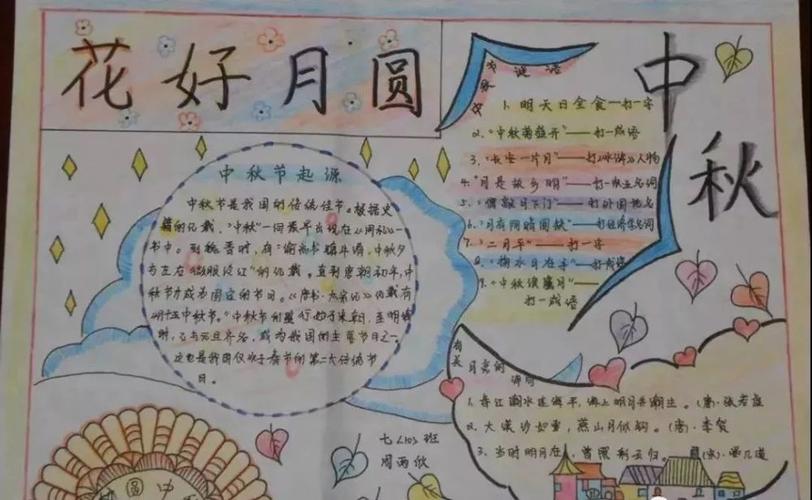 花好月圆
中秋
中秋节起源
中秋节是我国的传统佳节。根据史
籍的记载,“中秋”一词最早出现在《周礼》一
书中。到魏晋时,有“谕尚书镇牛渚,中秋夕
与左右微服泛江”的记载。直到唐朝初年,中
秋节才成为固定的节日。《唐书·太宗记》记载有
“八月十五中秋节”。中秋节的盛行始于宋朝,至明清
时,已与元旦齐名,成为我国的主要节日之一
这也是我国仅次于春节的第二大传统节
日。
中秋谜语
1. 明天日全食——打一字
2.“中秋菊盛开”——打一成语
3.“长安一片月”——打《水浒》人物
4.“月是故乡明”——打一 名词
5.“僧敲月下门”——打外国地名
6.“月有阴晴圆缺”——打经济学名词
7.“二月平”——打一字
8.“掬水月在手”——打成语
9.“中秋 月”——
打一成语
有关月亮的诗句
1. 春江潮水连海平,海上明月共潮生。(唐)·张若虚
2. 大漠沙如雪,燕山月似钩。(唐)·李贺
3. 当时明月在,曾照彩云归。(宋)·晏几道
七<10>班
圆中